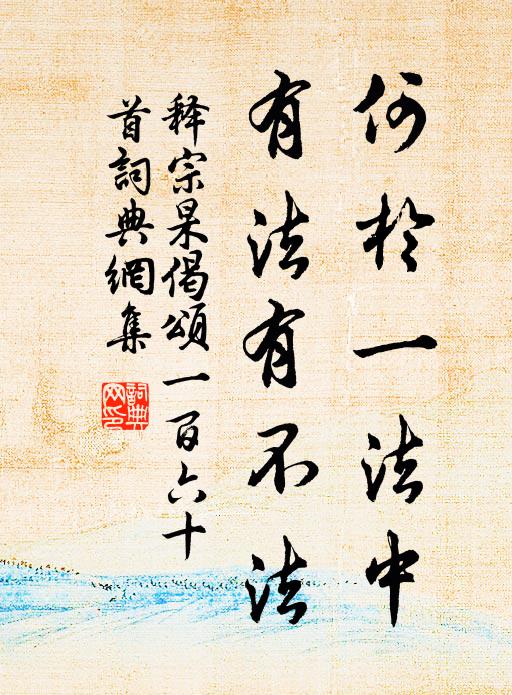 何於一法中
有法有不法
释宗杲偈頌一百六十
首詞典網集
詞典
网印